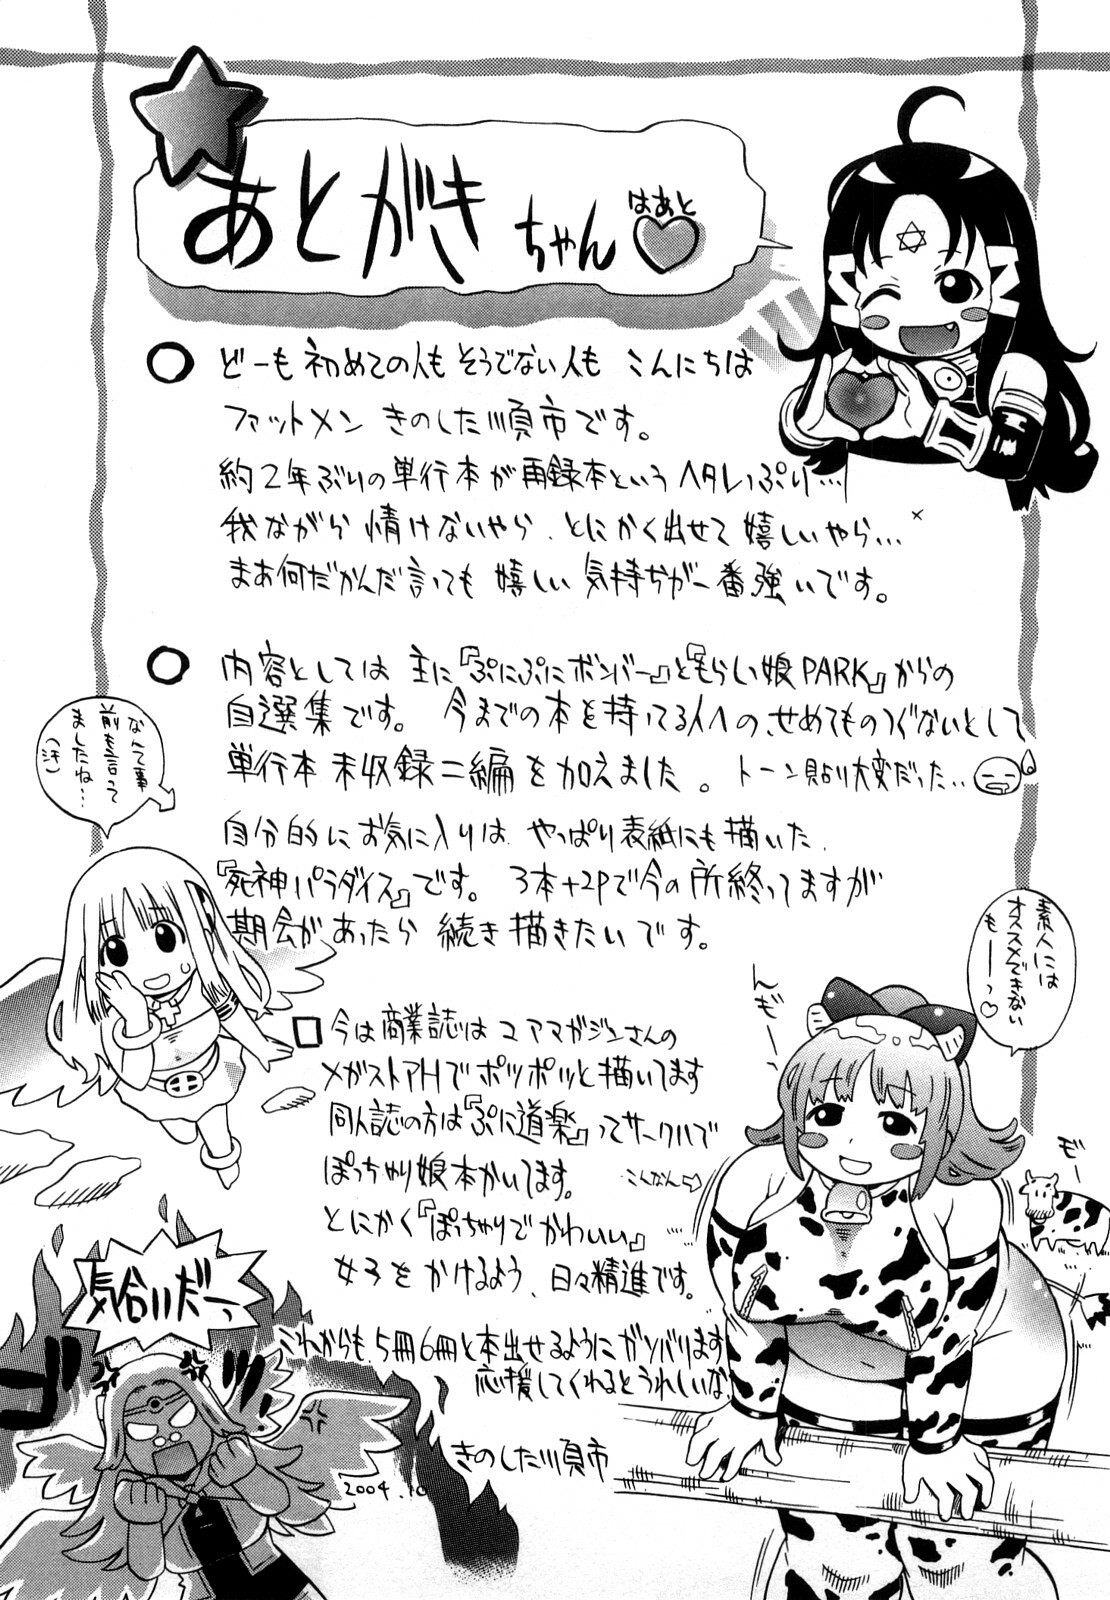 あとがきちゃん
はあと
どーも初めての人もそうでない人も こんにちは
ファットメン きのした順市です。
約2年ぶりの単行本が再録本というヘタレっぷり…
我ながら情けないやら、とにかく出せて嬉しいやら…
まあ何だかんだ言っても 嬉しい 気持ちが一番強いです。
内容としては 主に『ぷにぷにボンバー』と『もらい娘PARK』からの
自選集です。 今までの本を持ってる人への、せめてものつぐないとして
単行本未収録二編を加えました。 トーン貼り大変だった…
なんて事
前も言って
ましたね…
(汗)
自分的にお気に入りは、やっぱり表紙にも描いた、
『死神パラダイス』です。 3本+2Pで今の所終ってますが
期会があったら 続き描きたいです。
素人には
オススメできない
もーっ♡
んぎー
今は商業誌はコアマガジンさんの
メガストアHでポツポツと描いてます
同人誌の方は『ぷに道楽』ってサークルで
ぽっちゃり娘本かいてます。
こんなん⇨
モー
とにかく『ぽっちゃりでかわいい』
女子をかけるよう、日々精進です。
気合いだーっ
ゴ
ゴ
これからも、5冊6冊と本出せるようにガンバります
応援してくれるとうれしいな。
きのした順市
2004.10